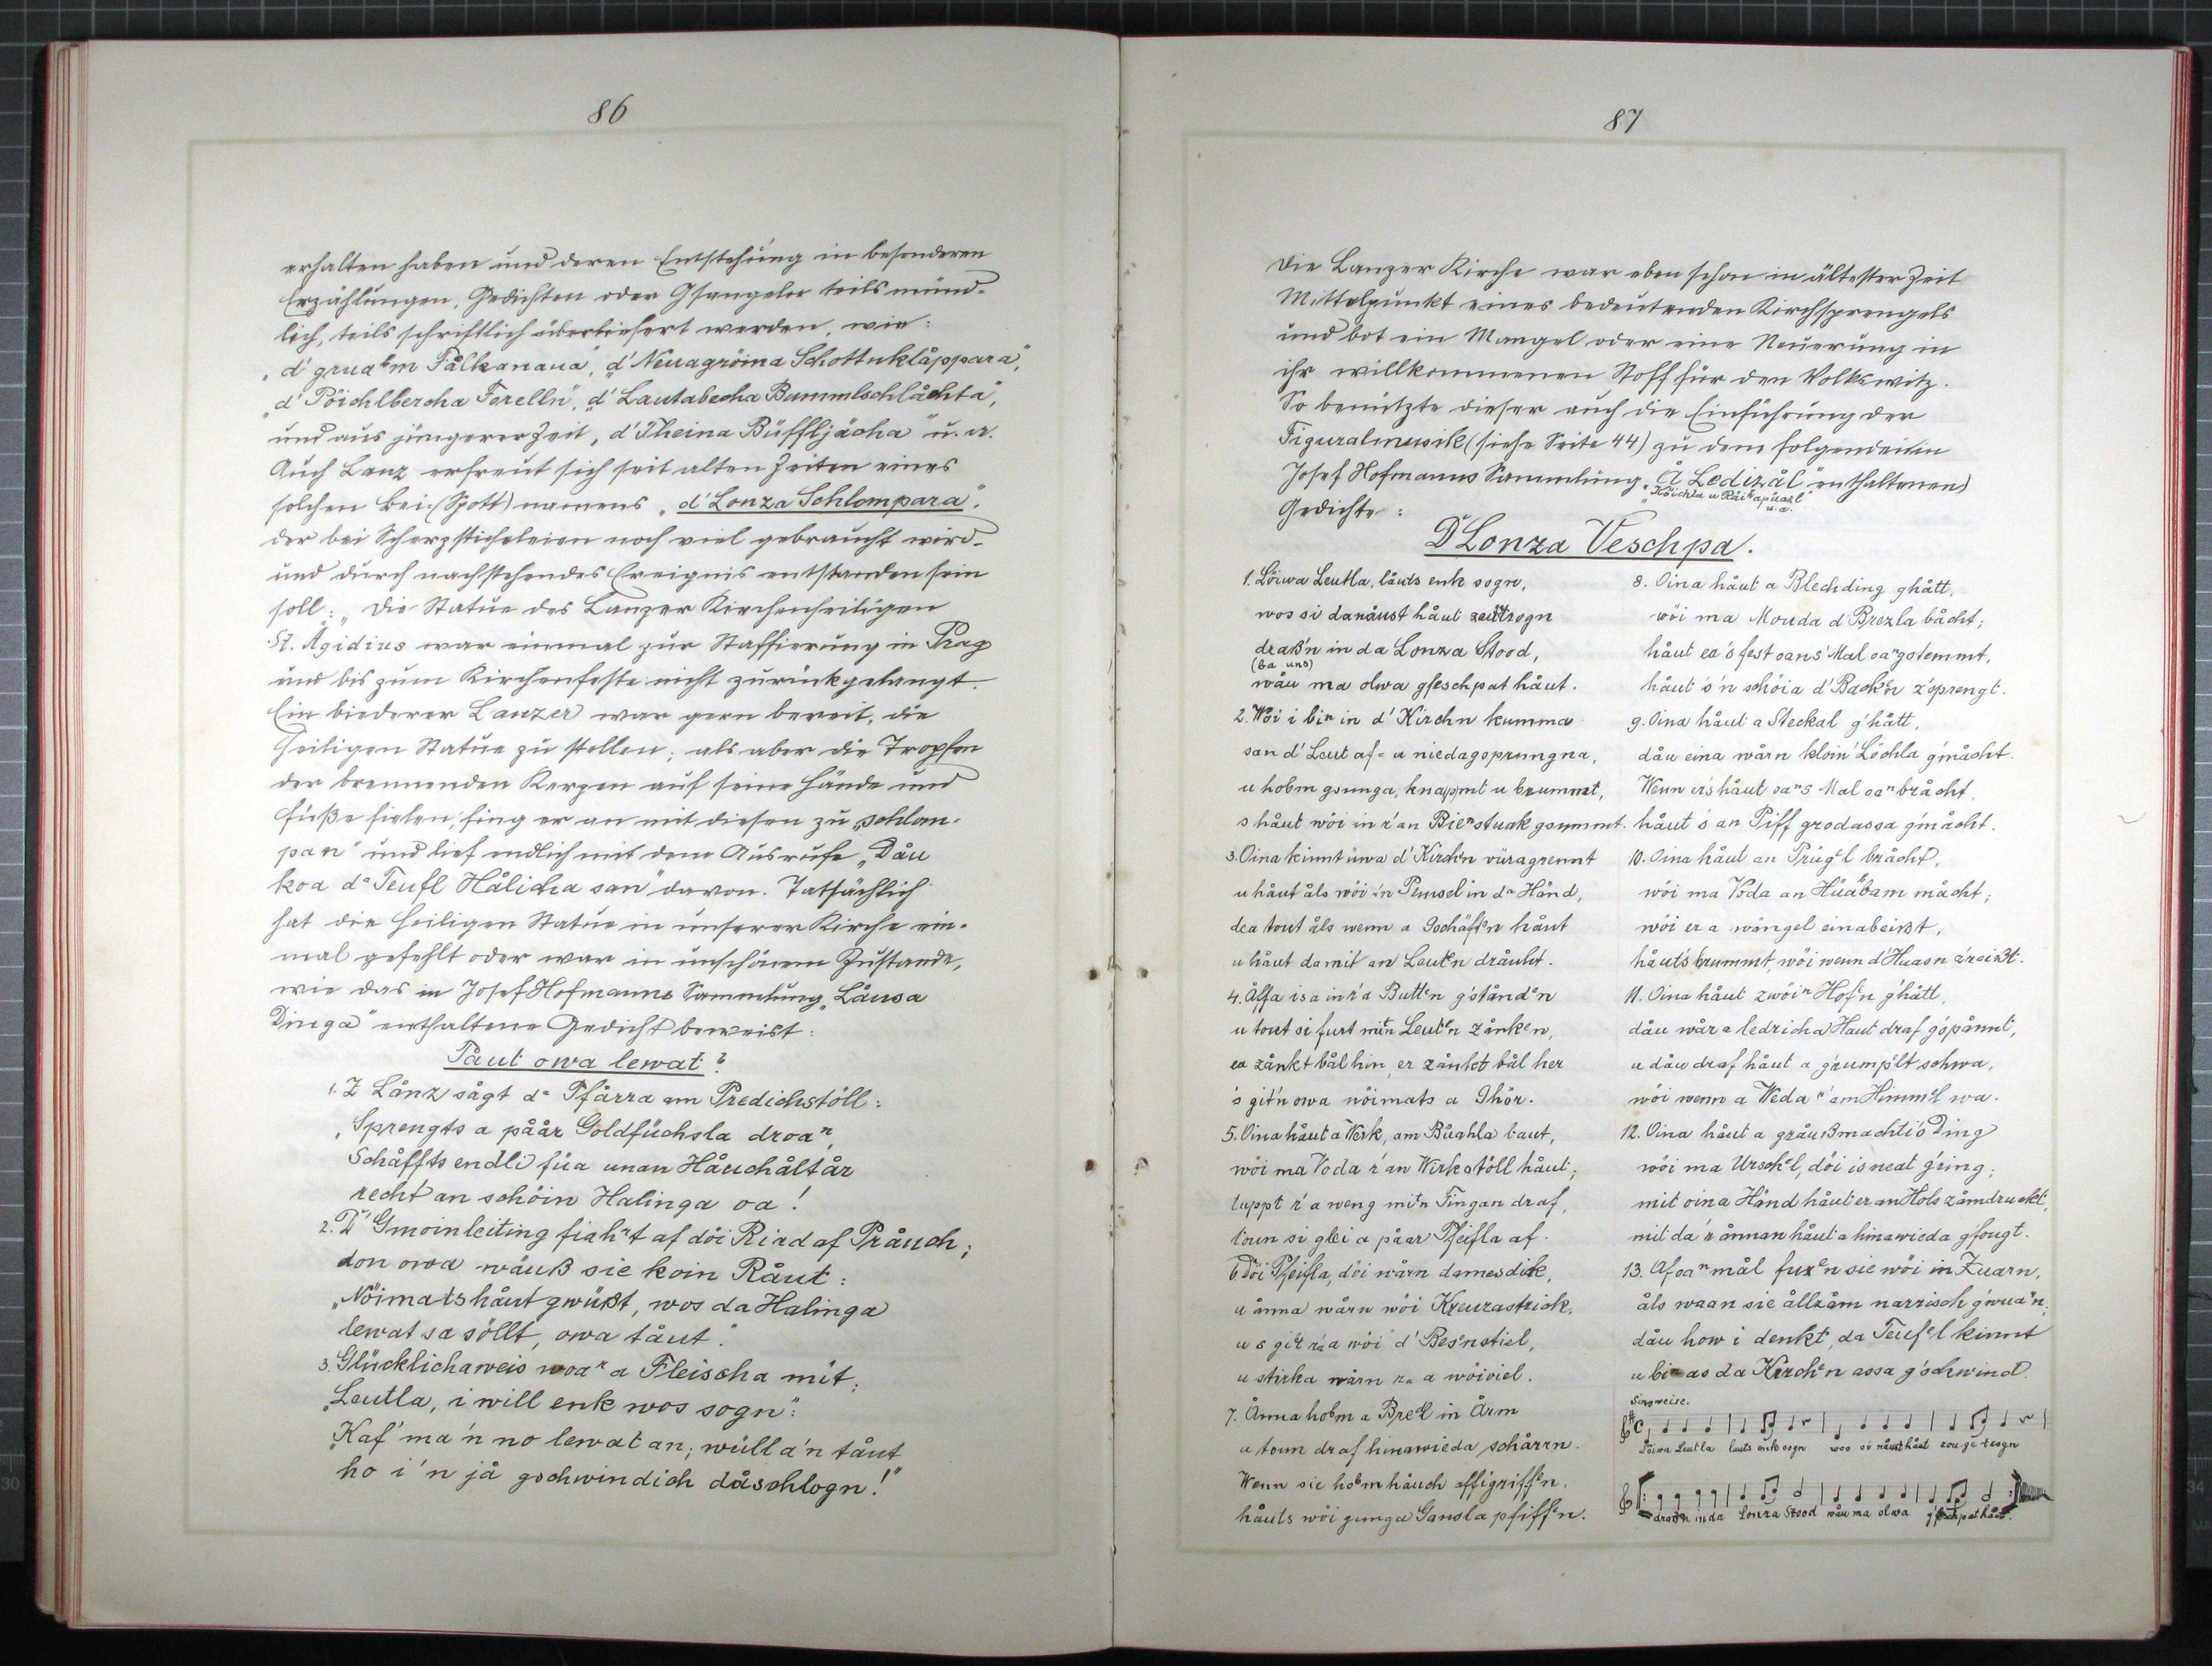 86
erhalten haben und deren Entstehung in besonderen
Erzählungen, Gedichten oder Gsangeln teils münd-
lich, teils schriftlich überliefert werden, wie:
„d' gruabm Fålkanaua", „d' Neuagröina Schottnklåppara",
„d' Pöichlbercha Forelln", „d' Lautabecha Bummlschlåchta",
und aus jüngerer Zeit „d' Theina Büffljächa" u. a.
Auch Lanz erfreut sich seit alten Zeiten eines
solchen Bei-(Spott)namens „d' Lonza Schlompara",
der bei Scherzsticheleien noch viel gebraucht wird
und durch nachstehendes Ereignis entstanden sein
soll: „Die Statue des Lanzer Kirchenheiligen
St. Ägidius war einmal zur Staffierung in Prag
und bis zum Kirchenfeste nicht zurückgelangt.
Ein biederer Lanzer war gern bereit, die
heiligen Statue zu stellen; als aber die Tropfen
der brennenden Kerzen auf seine Hände und
Füße fielen, fing er an mit diesen zu „schlom-
pan" und lief endlich mit dem Ausrufe „Dåu
koa da Teufl Hålicha san" davon. Tatsächlich
hat die heiligen Statue in unserer Kirche ein-
mal gefehlt oder war in unschönem Zustande,
wie das in Josef Hofmanns Sammlung „Låusa
Dinga" enthaltene Gedicht beweist:
Tåut owa lewat?
1. Z Lånz sågt da Pfårra am Predichstöll:
„Sprengts a påår Goldfüchsla droan,
Schåffts endli füa unan Håuchåltår
recht an schöin Halinga oa!
2. D' Gmoinleiting fiahrt af döi Riad af Pråuch;
don owa wåuß sie koin Råut:
„Nöimats håut gwüßt, wos da Halinga
lewat sa söllt, owa tåut".
3. Glücklichaweis woar a Fleischa mit;
„Leutla, i will enk wos sogn":
„Kaf' ma 'n no lewat an; wüll a'n tåut
ho i 'n jå gschwindich dåschlogn!"
87
Die Lanzer Kirche war eben schon in ältester Zeit
Mittelpunkt eines bedeutenden Kirchsprengels
und bot ein Mangel oder eine Neuerung in
ihr willkommenen Stoff für den Volkswitz.
So benützte dieser auch die Einführung der
Figuralmusik (siehe Seite 44) zu dem folgenden in
Josef Hofmanns Sammlung „Å Ledizål" enthaltenen
u. a.
Gedichte:
D' Lonza Veschpa.
1. Löiwa Leutla, låuts enk sogn,
wos si danåust håut zoutrogn
draß'n in da Lonza Stood,
(ba uns)
wåu ma olwa gfeschpat håut.
2. Wöi i bin in d' Kirchn kumma
san d' Leut af- u niedagsprungna,
u hobm gsunga, knappmt u brummt,
s håut wöi in r'an Bienstuak gsummt.
3. Oina kinnt üwa d' Kirch'n vüragrennt
u håut åls wöi an Pemsel in da Hånd,
dea tout åls wenn a Gschäft'n håut
u håut damit an Leut'n dråuht.
4. Åffa is a in r'a Butt'n g'stånd'n
u tout si furt mitn Leut'n zånk'n,
ea zånkt bål hin, er zånkt bål her
's git'n owa nöimats a Ghör.
5. Oina håut a Werk, am Büahla baut,
wöi ma Voda r'an Wirkstöll håut;
tuppt r'a weng mit'n Fingan draf,
toun si glei a påar Pfeifla af.
6. Döi Pfeifla, döi wårn damesdik,
u ånna wårn wöi Kreuzastrick,
u s git ra a wöi d' Bes'nstiel,
u stirka wårn ra a wöiviel.
7. Ånna hobm a Bretl in Årm
u toun draf hinawieda schårrn.
Wenn sie hobm håuch affigriff'n,
håuts wöi gunga Gansla pfiff'n.
8. Oina håut a Blechding ghått,
wöi ma Mouda d' Brezla båcht;
håut ea's fest oans' Mal oangstemmt,
håut 's'n schöia d' Back'n z'sprengt.
9. Oina håut a Steckal g'hått,
dåu eina wårn kloin' Löchla g'måcht.
Wenn er's håut oans Mal oanbråcht,
håut 's an Piff grodassa g'måcht.
10. Oina håut an Prüg'l bråcht,
wöi ma Voda an Hüabam måcht;
wöi er a wöngel einabeißt,
håuts brummt, wöi wenn d' Huasn z'reißt.
11. Oina håut zwöin Hof'n g'hått,
dåu wår a ledricha Haut draf g'spånnt,
u dåu draf håut a g'rump'lt schwa,
wöi wenn a Weda am Himm'l wa.
12. Oina håut a gråußmachti's Ding
wöi ma Ursch'l, döi is neat g'ring;
mit oina Hånd håut er an Hols zåmdruckt,
mit da r ånnan håut a hinawieda g'fougt.
13. Af oan mål fux'n sie wöi in Zuarn,
åls waan sie ållzåm narrisch g'wuan;
dåu how i denkt, da Teuf'l kinnt
u bin as da Kirch'n assa g'schwind.
Singweise.
Löiwa Leutla lauts enk sogn wos si nåust håut zou-ge-trogn
draßn in da Lonza Stood wåu ma olwa g'feschpat håut.